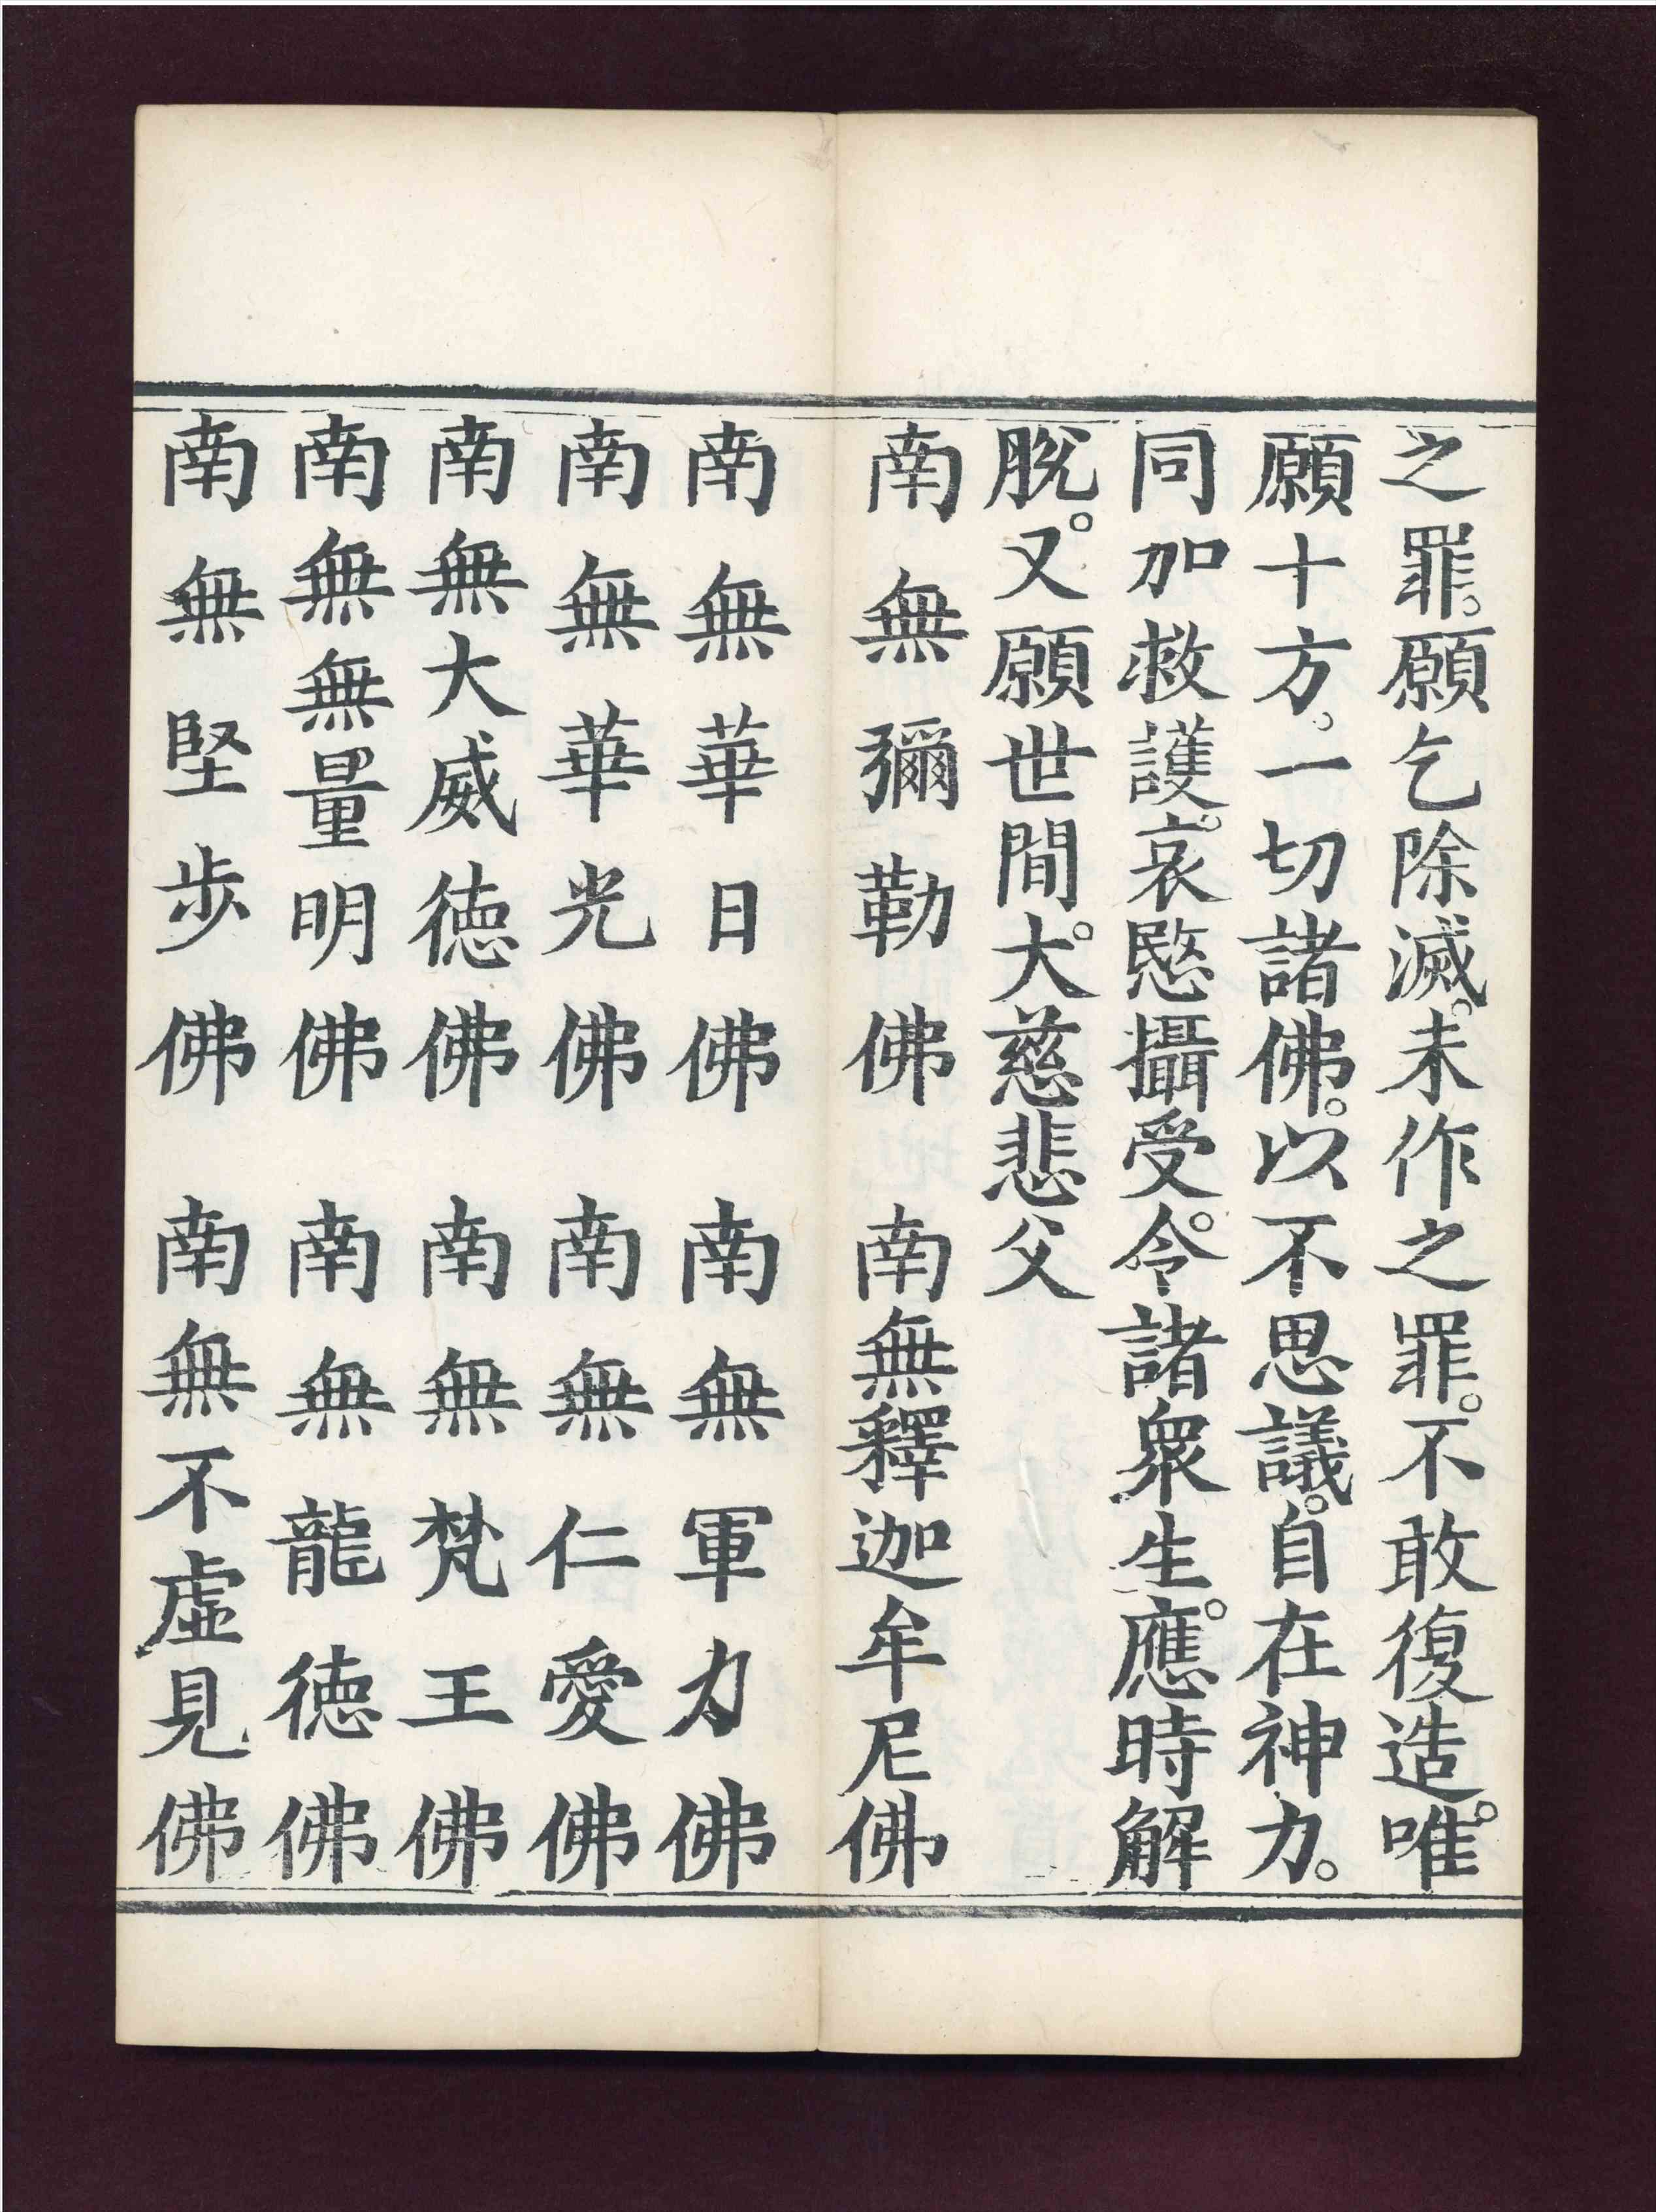 之罪。願乞除滅。未作之罪。不敢復造。唯
願十方。一切諸佛。以不思議。自在神力。
同加救護。哀愍攝受。令諸衆生。應時解
脫。又願世間。大慈悲父
南無彌勒佛　南無釋迦牟尼佛
南無華日佛　南無軍力佛
南無華光佛　南無仁愛佛
南無大威德佛　南無梵王佛
南無無量明佛　南無龍德佛
南無堅步佛　南無不虛見佛